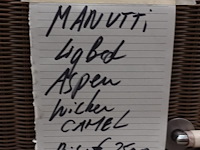 MANUTTI
Ligbed
Aspen
Wicker
CAMEL